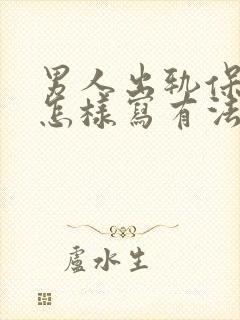 男人出軌保
怎樣寫有法
盧水生